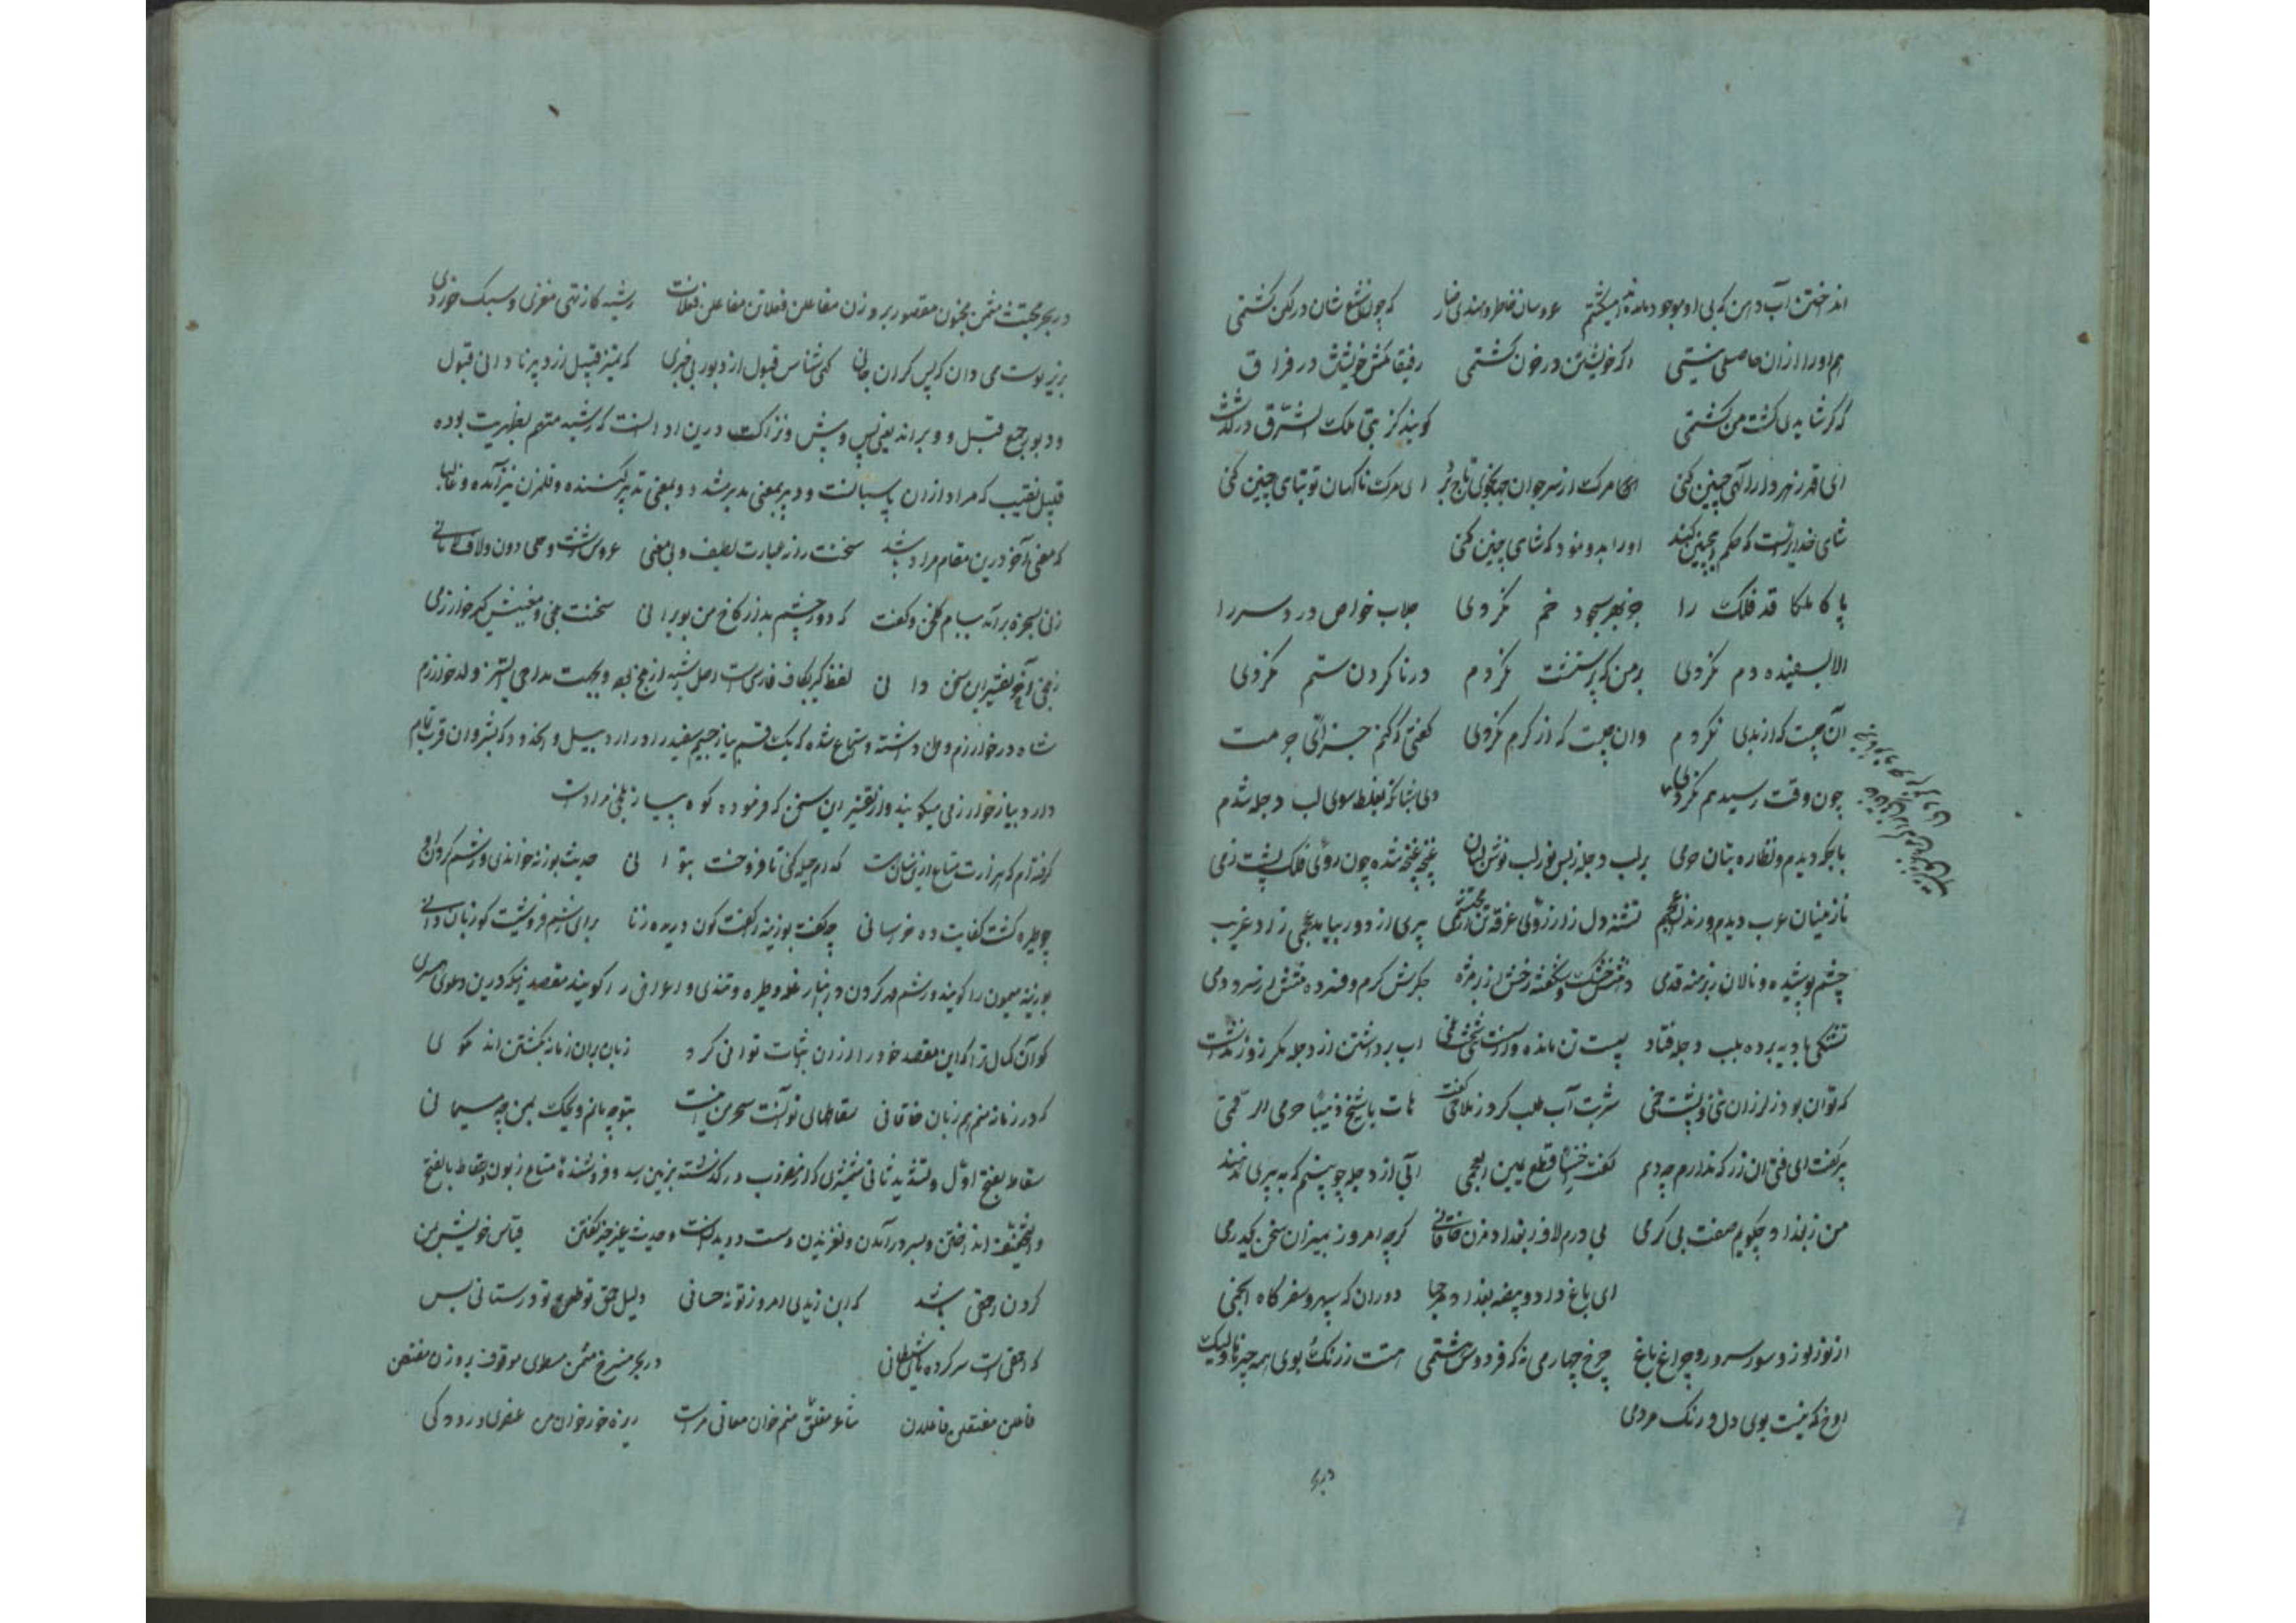 انداختن آب دهن که بی او موجود مانده میکشتم عروسان خاطر دهندی رضا که چون شمع شان در لکن کشتمی
هم او را ازان حاصلی نیستی اکر خویشتن در خون کشتمی رفیقا مکش خویشتن در فراق
که کر شایدی کشت من کشتمی کویند کز تب ملک الشرق درکذشت
ای قهر زهردار الهی چنین کنی ای مرک از سر جوان جهانجوی تاج بر ای مرک ناکهان تو تباهی چنین کنی
شاهی خدایراست که حکم اینچنین کند او را بدو نمود که شاهی چنین کنی
پاکا ملکا قد فلک را جز بهر سجود خم نکردی جلاب خواص درد سر را
الا بسفیده دم نکردی بر من که پرستشت نکردم در ناکردن ستم نکردی
آن چیست که از بدی نکردم وان چیست که از کرم نکردی کفتی که کنم جزات چو مست
چون وقت رسید هم نکردی دی شبانکه بغلط سوی لب دجله شدم
باجکه دیدم و نظاره بتان حرمی بر لب دجله ز بس نوش لب نوش لبان غنچه غنچه شده چون روی فلک پشت زمی
نازنینان عرب دیدم و رندان عجم تشنه دل ز آرزوی غرقه تن از محتشمی پیری از دور بیامد عجمی زاد غریب
چشم پوشیده و نالان ز برهنه قدمی دهنش خشک و شکفته رخش از بر مژه جکرش کرم و فسرده تنش از سرد دمی
تشنکی بادیه برده بلب دجله فتاد سست تن مانده و از سست تنی سخت غمی آب برداشتن از دجله مکر زور نداشت
که توان بود ز لرزان تنی و پشت خمی شربت آب طلب کرد ز ملاحی کفت هات یا شیخ ذهیبا حرمی الرقمی
پیر کفت ای فتی آن زر که ندارم چه دهم کفت اخسا قطع الله یمین العجمی آبی از دجله چو بینم که به پیری ندهند
من ز بغداد چکویم صفت بی کرمی بی درم لاف ز بغداد مزن خاقانی کرچه امروز بمیزان سخن یکدرمی
ای باغ داد و بیضه بغداد مرحبا دوران که سپهر و سفر کاه انجمی
از نور نوز و سور سرور و چراغ باغ چرخ چهارمی نه که فردوس هشتمی هست ز رنک و بوی همه چیزها ولیک
اوخ که نیست بوی دل و رنک مردمی
در بحر
در بحر مجتث مثمن مخبون مقصور بر وزن مفاعلن فعلاتن مفاعلن فعلات رشید کا ز تهی مغزی و سبک خردی
پری بپوست همی دان که بس کران جانی کهی شناس قبول از دبور بی خبری که تمیز قبیل از دبیر نادانی قبول
و دبور جمع قبل و دبر اند یعنی پس و پیش و نزاکت درین ادا آنست که رشید متهم بظهریت بوده
قبیل نقیب که مراد ازان پاسبانست و دبیر بمعنی مدبر شد و بمعنی تدبیر کننده و قلمزن نیز آمده و غالبا
که معنی آخر درین مقام مراد باشد سخنت را نه عبارت لطیف و نی معنی عروس زشت و حلی دون و لاف لامانی
زنی بسخره برآمد ببام کلخن و کفت که دور چشم بد از کاخ من بویرانی سخنت بلخی و معنیش کیر خوارزمی
ز بلخی آخر تفسیر این سخن دانی لفظ کیر بکاف فارسی است اصل رشید از بلخ بود و بجهت مداحی اتسز ولد خوارزم
شاه در خوارزم وطن داشته و استماع شده که یک قسم پیاز حجیم سفید را در اردبیل و آن حدود که بشروان قرب تمام
دارد پیاز خوارزمی میکویند و از تفسیر این سخن که فرموده کوه پیاز بلخی مراد است
کرفتم آنکه هزارت متاع ازین سان است کدام حیله کنی تا فروخت بتوانی حدیث بوزنه خواندی و رشم کردن او
چو طیره کشت کفایت ده خراسانی چه کفت بوزنه را کفت کون دریده زنا برای رشم فروشیت کو زبان دانی
بوزینه میمون را کویند و رشم مهر کردن در انبار غله و طیره و تندی و اعراض را کویند مقصد آنکه درین دعوی همسری
کو آن کمال ترا که این مقصد خود را ازان بثبات توانی کرد زبان بران زمانه بکشتن اند مکوی
که در زمانه منم هم زبان خاقانی سقاطهای تو آنست سحر من اینست بتو چه مانم ویحک بمن چه میمانی
سقاط بفتح اول و تشدید ثانی شمشیری که از مضروب درکذشته بزمین رسد و فروشنده متاع زبون سقاط بالفتح
و التخفیف انداختن و بسر درآمدن و لغزیدن دست و دویدن است و حدیث غیر چیز کفتن قیاس خویش بمن
کردن احمقی باشد که ابن زیدی امروز تو نه حسانی دلیل حمق تو طعن تو در سنائی بس
که احمقی است سر کرده های شیطانی در بحر منسرخ مثمن مطوی موقوف بر وزن مفتعلن
فاعلن مفتعلن فاعلان شاعر مفلق منم خوان معانی مراست ریزه خور خوان من عنصری و رودکی